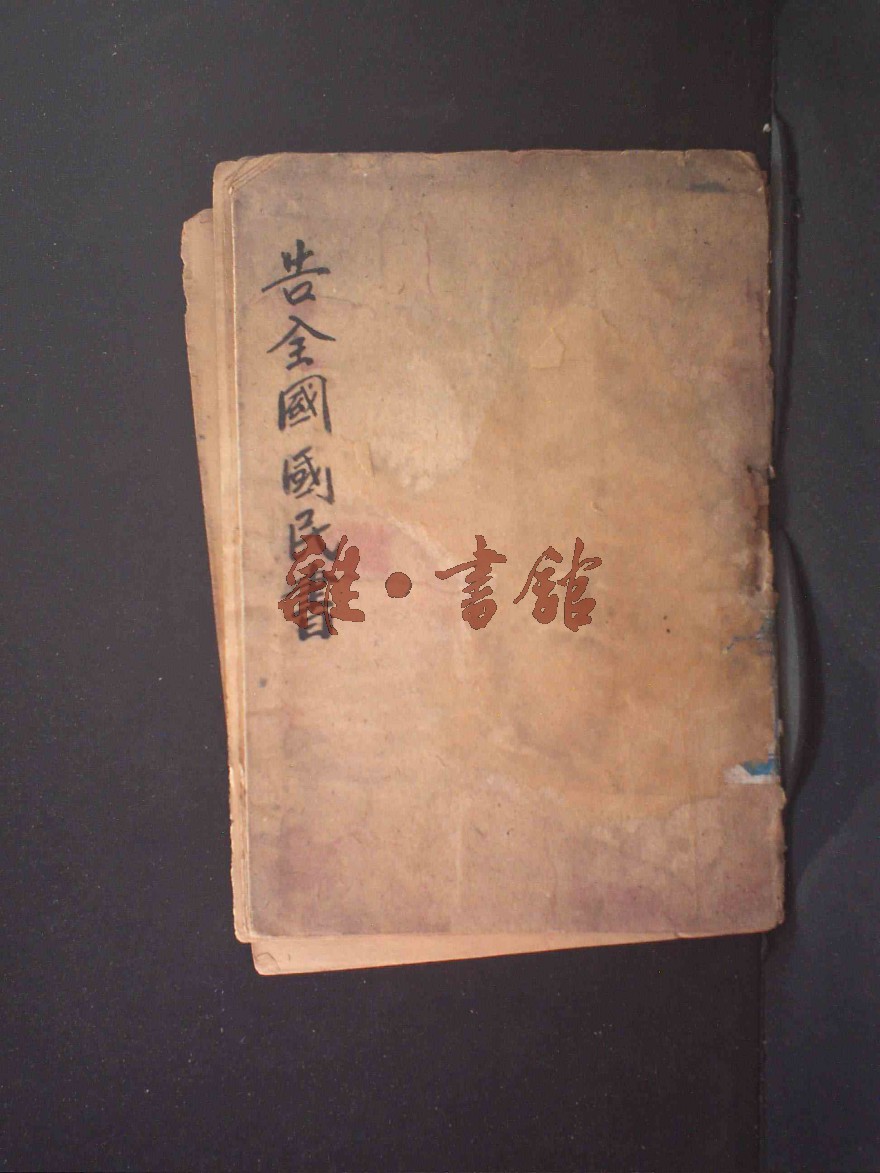 告全國國民書
雜·書館